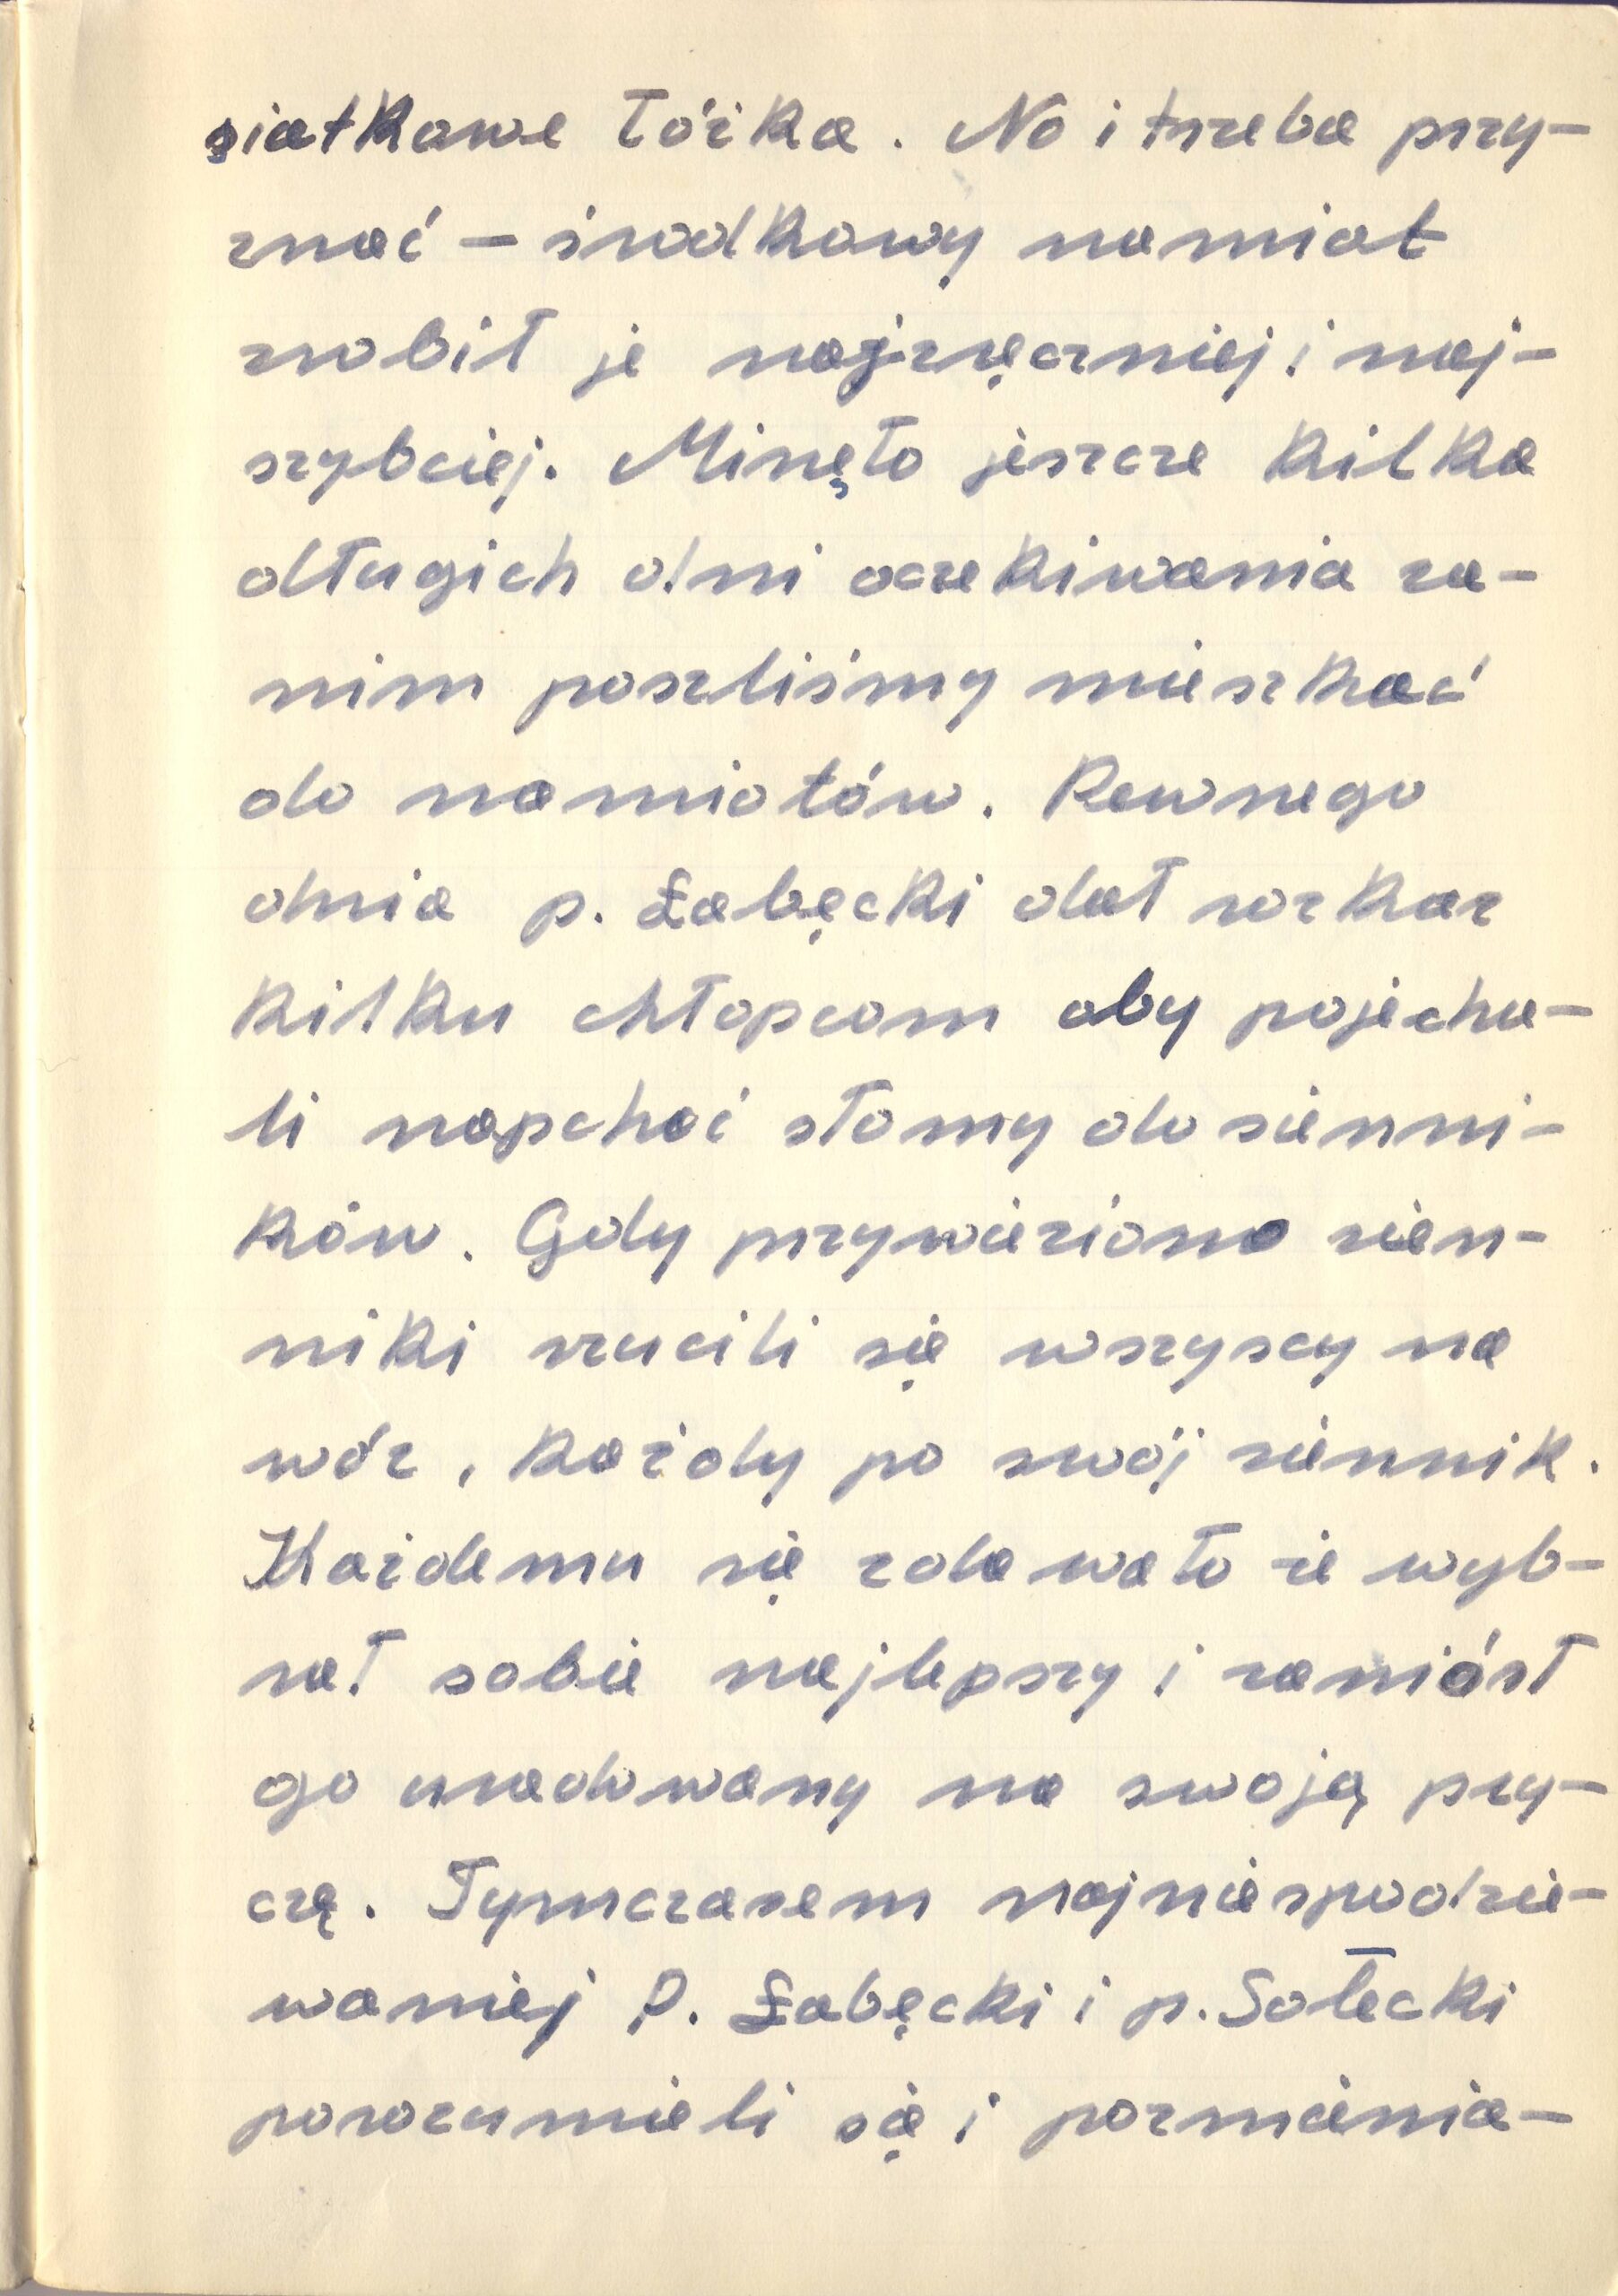 siatkowe łóżka. No i trzeba przy-
znać – środkowy namiot
zrobił je najzręczniej i naj-
szybciej. Minęło jeszcze kilka
długich dni oczekiwania za-
nim poszliśmy mieszkać
do namiotów. Pewnego
dnia p. Łabęcki dał rozkaz
kilku chłopcom aby pojecha-
li napchać słomy do sienni-
ków. Gdy przywieziono sien-
niki rzucili się wszyscy na
wóz, każdy po swój siennik.
Każdemu się zdawało że wyb-
rał sobie najlepszy i zaniósł
go uradowany na swoją pry-
czę. Tymczasem najniespodzie-
waniej P. Łabęcki i p. Sołecki
porozumieli się i pozmienia-